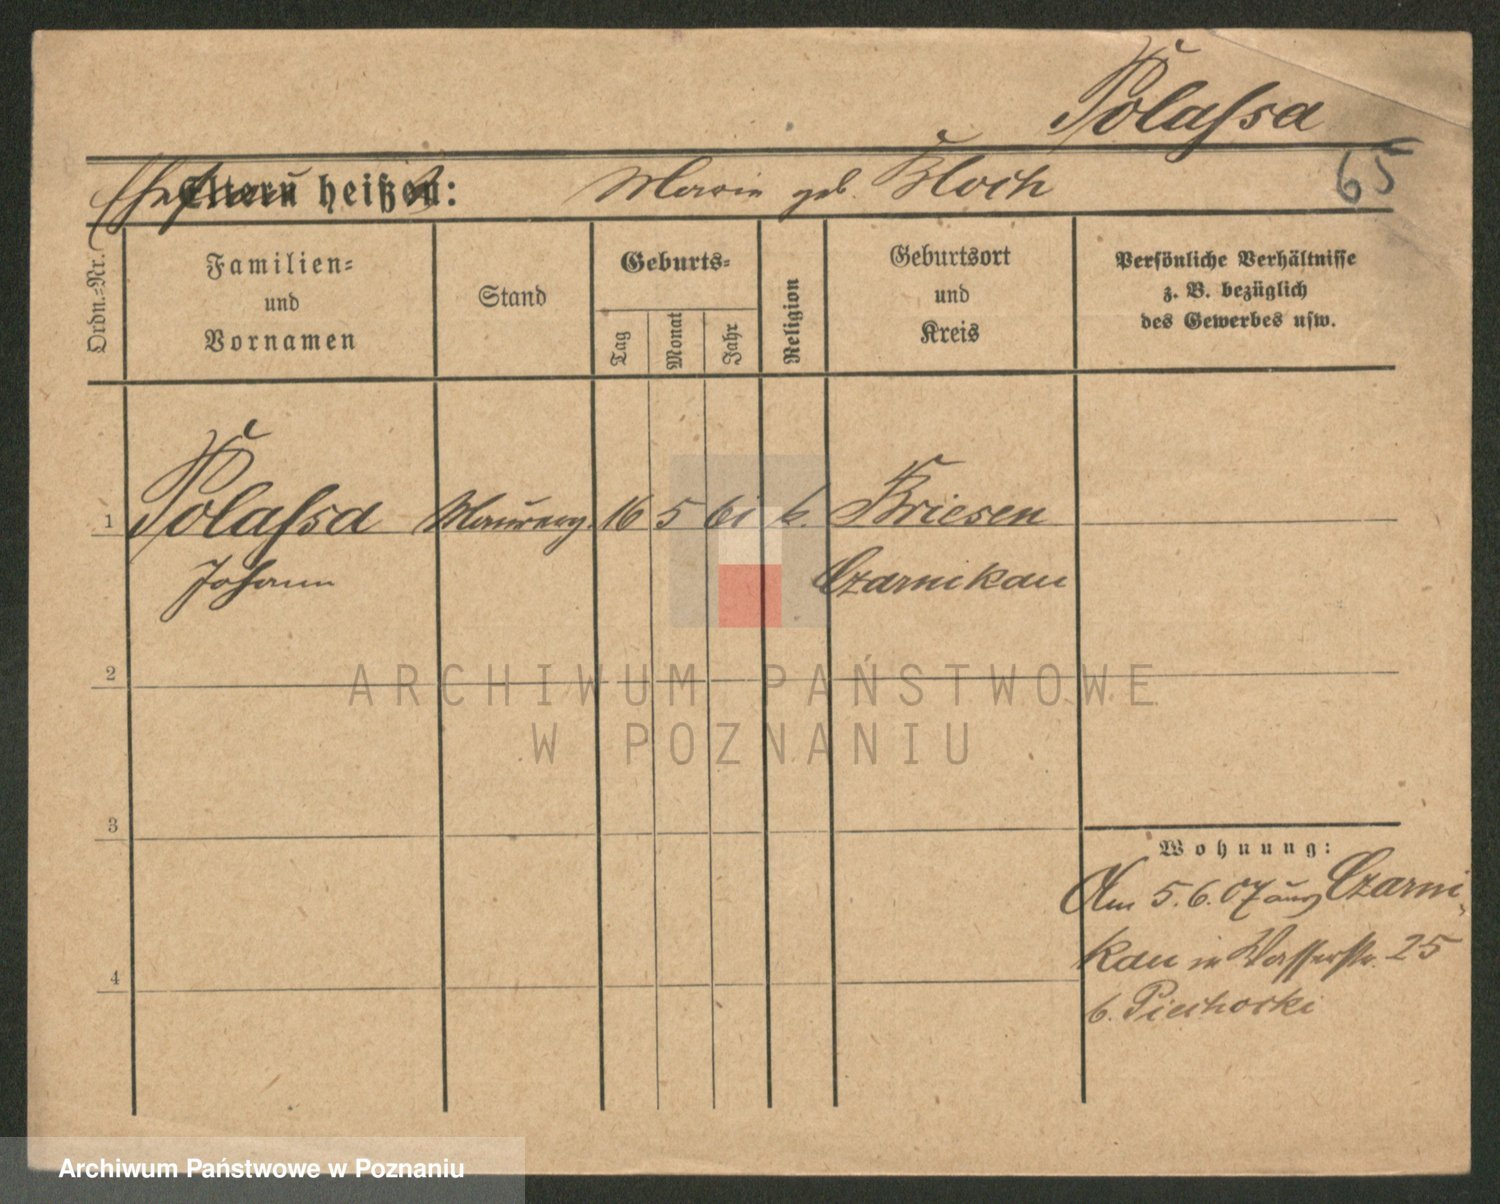 Polassa
65
Ehefrau Eltern heißen: Marie geb. Kloch
Ordn.=Nr.
Familien=
und
Vornamen
Stand
Geburts=
Tag
Monat
Jahr
Religion
Geburtsort
und
Kreis
Persönliche Verhältnisse
z. B. bezüglich
des Gewerbes usw.
1 Polassa Maurerg. 16 5 61 k. Kriesen
Johann Czarnikau
2
3
4
Wohnung:
Am 5.6.07 aus Czarni-
kau in Wasserstr. 25
b. Piechorki
ARCHIWUM PAŃSTWOWE
W POZNANIU
Archiwum Państwowe w Poznaniu